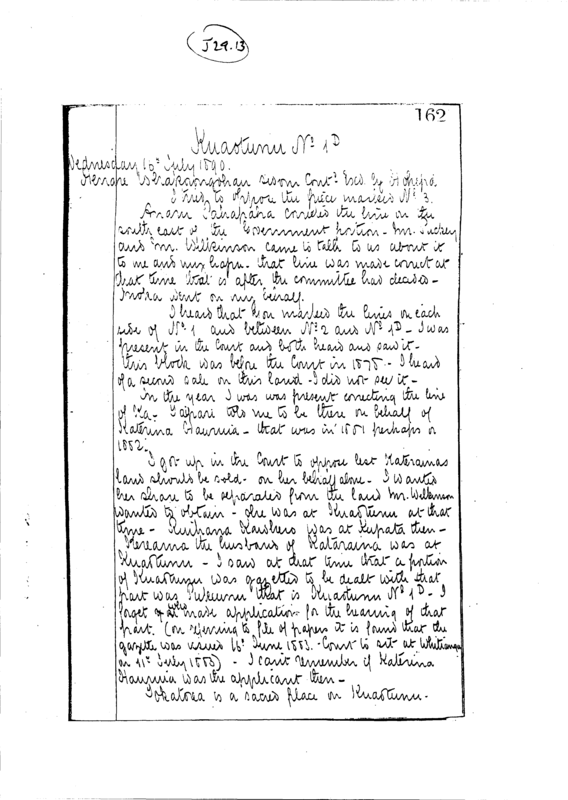 J29.13
162
Kuaotunu No 1D
Wednesday 16th July 1890.
Herare sworn Contd Exd by Hohepa
I tried to oppose the piece marked No 3.
Anaru carried the line on the
south east of the Government portion - Mr. Puckey
and Mr. Wilkinson came to talk to us about it
to me and my hapu - that line was made correct at
that time that is after the committee had decided -
went on my behalf.
I heard that marked the lines on each
side of No 1 and between No 2 and No 1D - I was
present in the Court and both heard and saw it -
this block was before the Court in 1878 - I heard
of a second sale on this land - I did not see it -
In the year I was was present correcting the line
of told me to be there on behalf of
Katerina Haumia - that was in 1881 perhaps or
1882 -
I got up in the Court to oppose lest Katerainas
land should be sold - on her behalf alone - I wanted
her share to be separated from the land Mr. Wilkinson
wanted to obtain - she was at Kuaotunu at that
time - was at then -
the husband of Kataraina was at
Kuaotunu - I saw at that time that a portion
of Kuaotunu was gazetted to be dealt with that
part was that is Kuaotunu No 1D - I
forget who made application for the hearing of that
part. (on referring to file of papers it is found that the
gazette was issued 16th June 1883 - Court to sit at Whitianga
on 11th July 1883) - I can't remember if Katerina
Haumia was the applicant then -
Tokatoea is a sacred place on Kuaotunu.